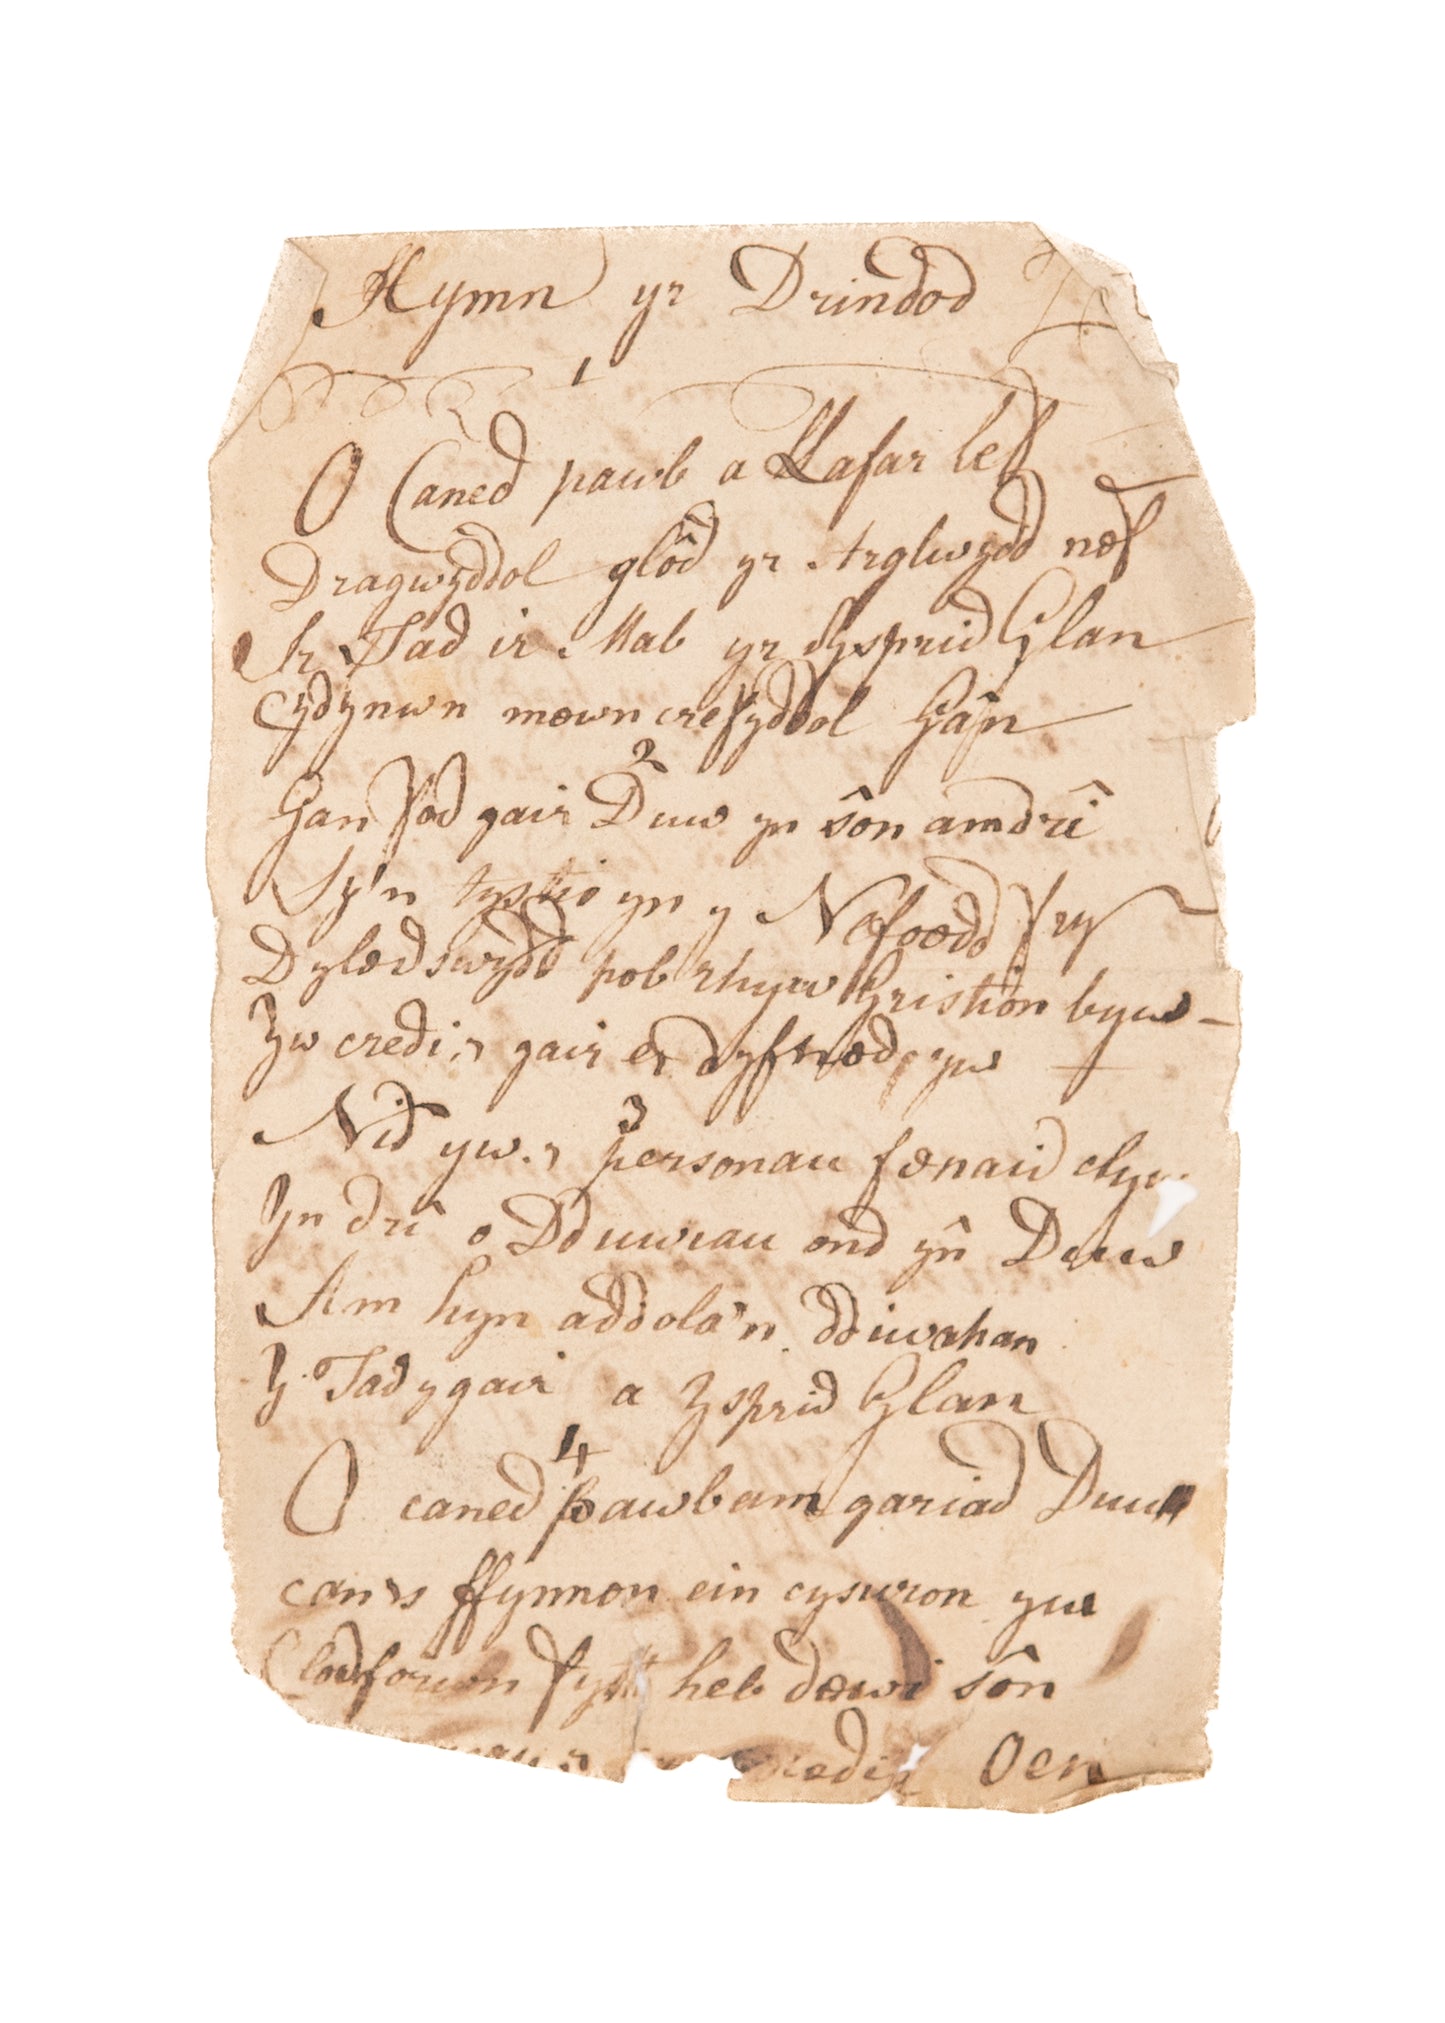 Hymn yr Drindod
1
O Caned pawb a Llafar lef
Dragwyddol glôd yr Arglwydd nef
Ir Tad ir Mab yr ysprid Glan
Cydynwn mewn crefyddol Gân
2
Gan fod gair Duw yn sôn am dri
Sy'n tystio yn y Nefoedd fry
Dyledswydd pob rhyw Gristion byw
Yw credi'r gair er dyfned yw
3
Nid yw'r personau fenaid clyw
Yn dri o Dduwiau ond yn Duw
Am hyn addola'n ddiwahan
Y Tad y gair a Ysprid Glan
4
O caned pawb am gariad Duw
canis ffynnon ein cyswron yw
Clodforwn fyth heb dewi sôn
Oen